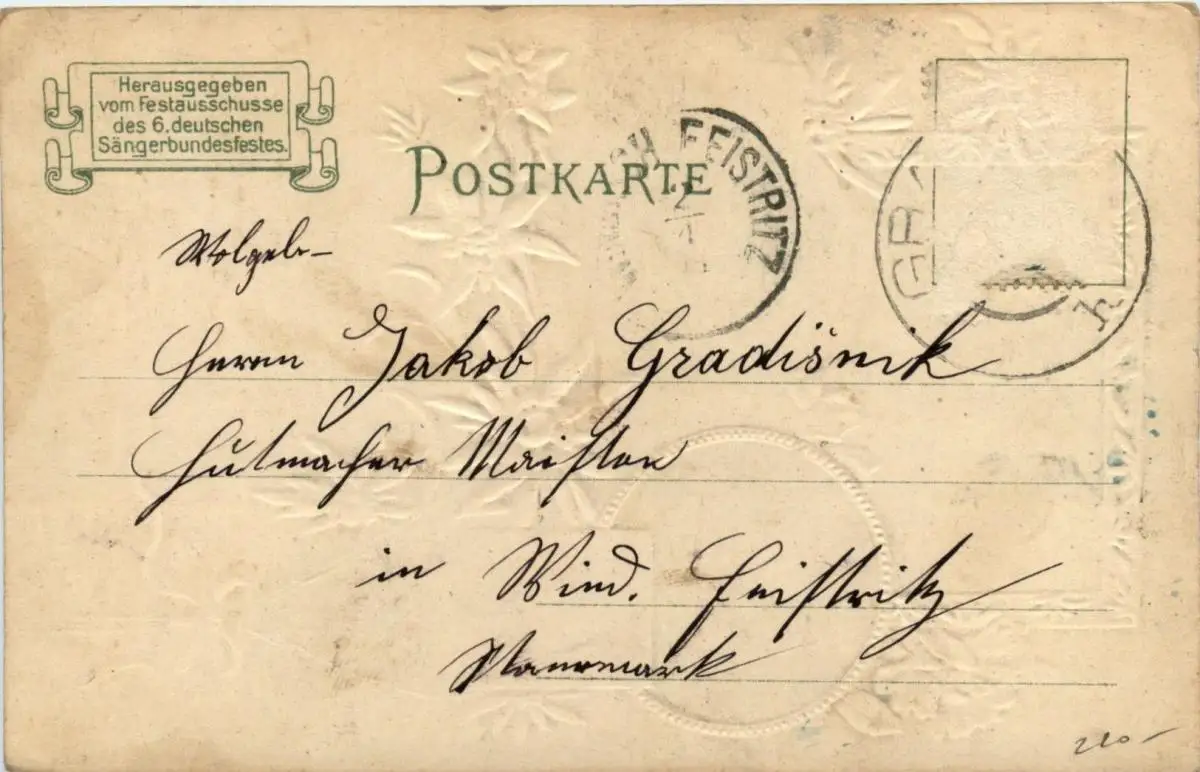 Herausgegeben
vom Festausschusse
des 6. deutschen
Sängerbundesfestes.
POSTKARTE
FEISTRITZ
GRA
Wolgeb-
Herrn Jakob Gradišnik
Hutmacher Meister
in Wind. Feistritz
Steiermark
210-